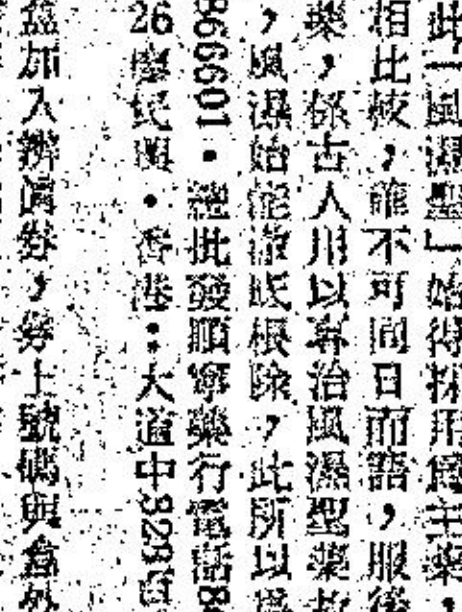 此「風濕聖」始得採用爲主藥,
相比較,誰不可同日而語,服後
藥,係古人用以專治風濕聖藥
,風濕始能澈底根除,此所以
866601·總批發順寧藥行電話8
26 民 ·香港:大道中323
盒加入 券,券上號碼與 外